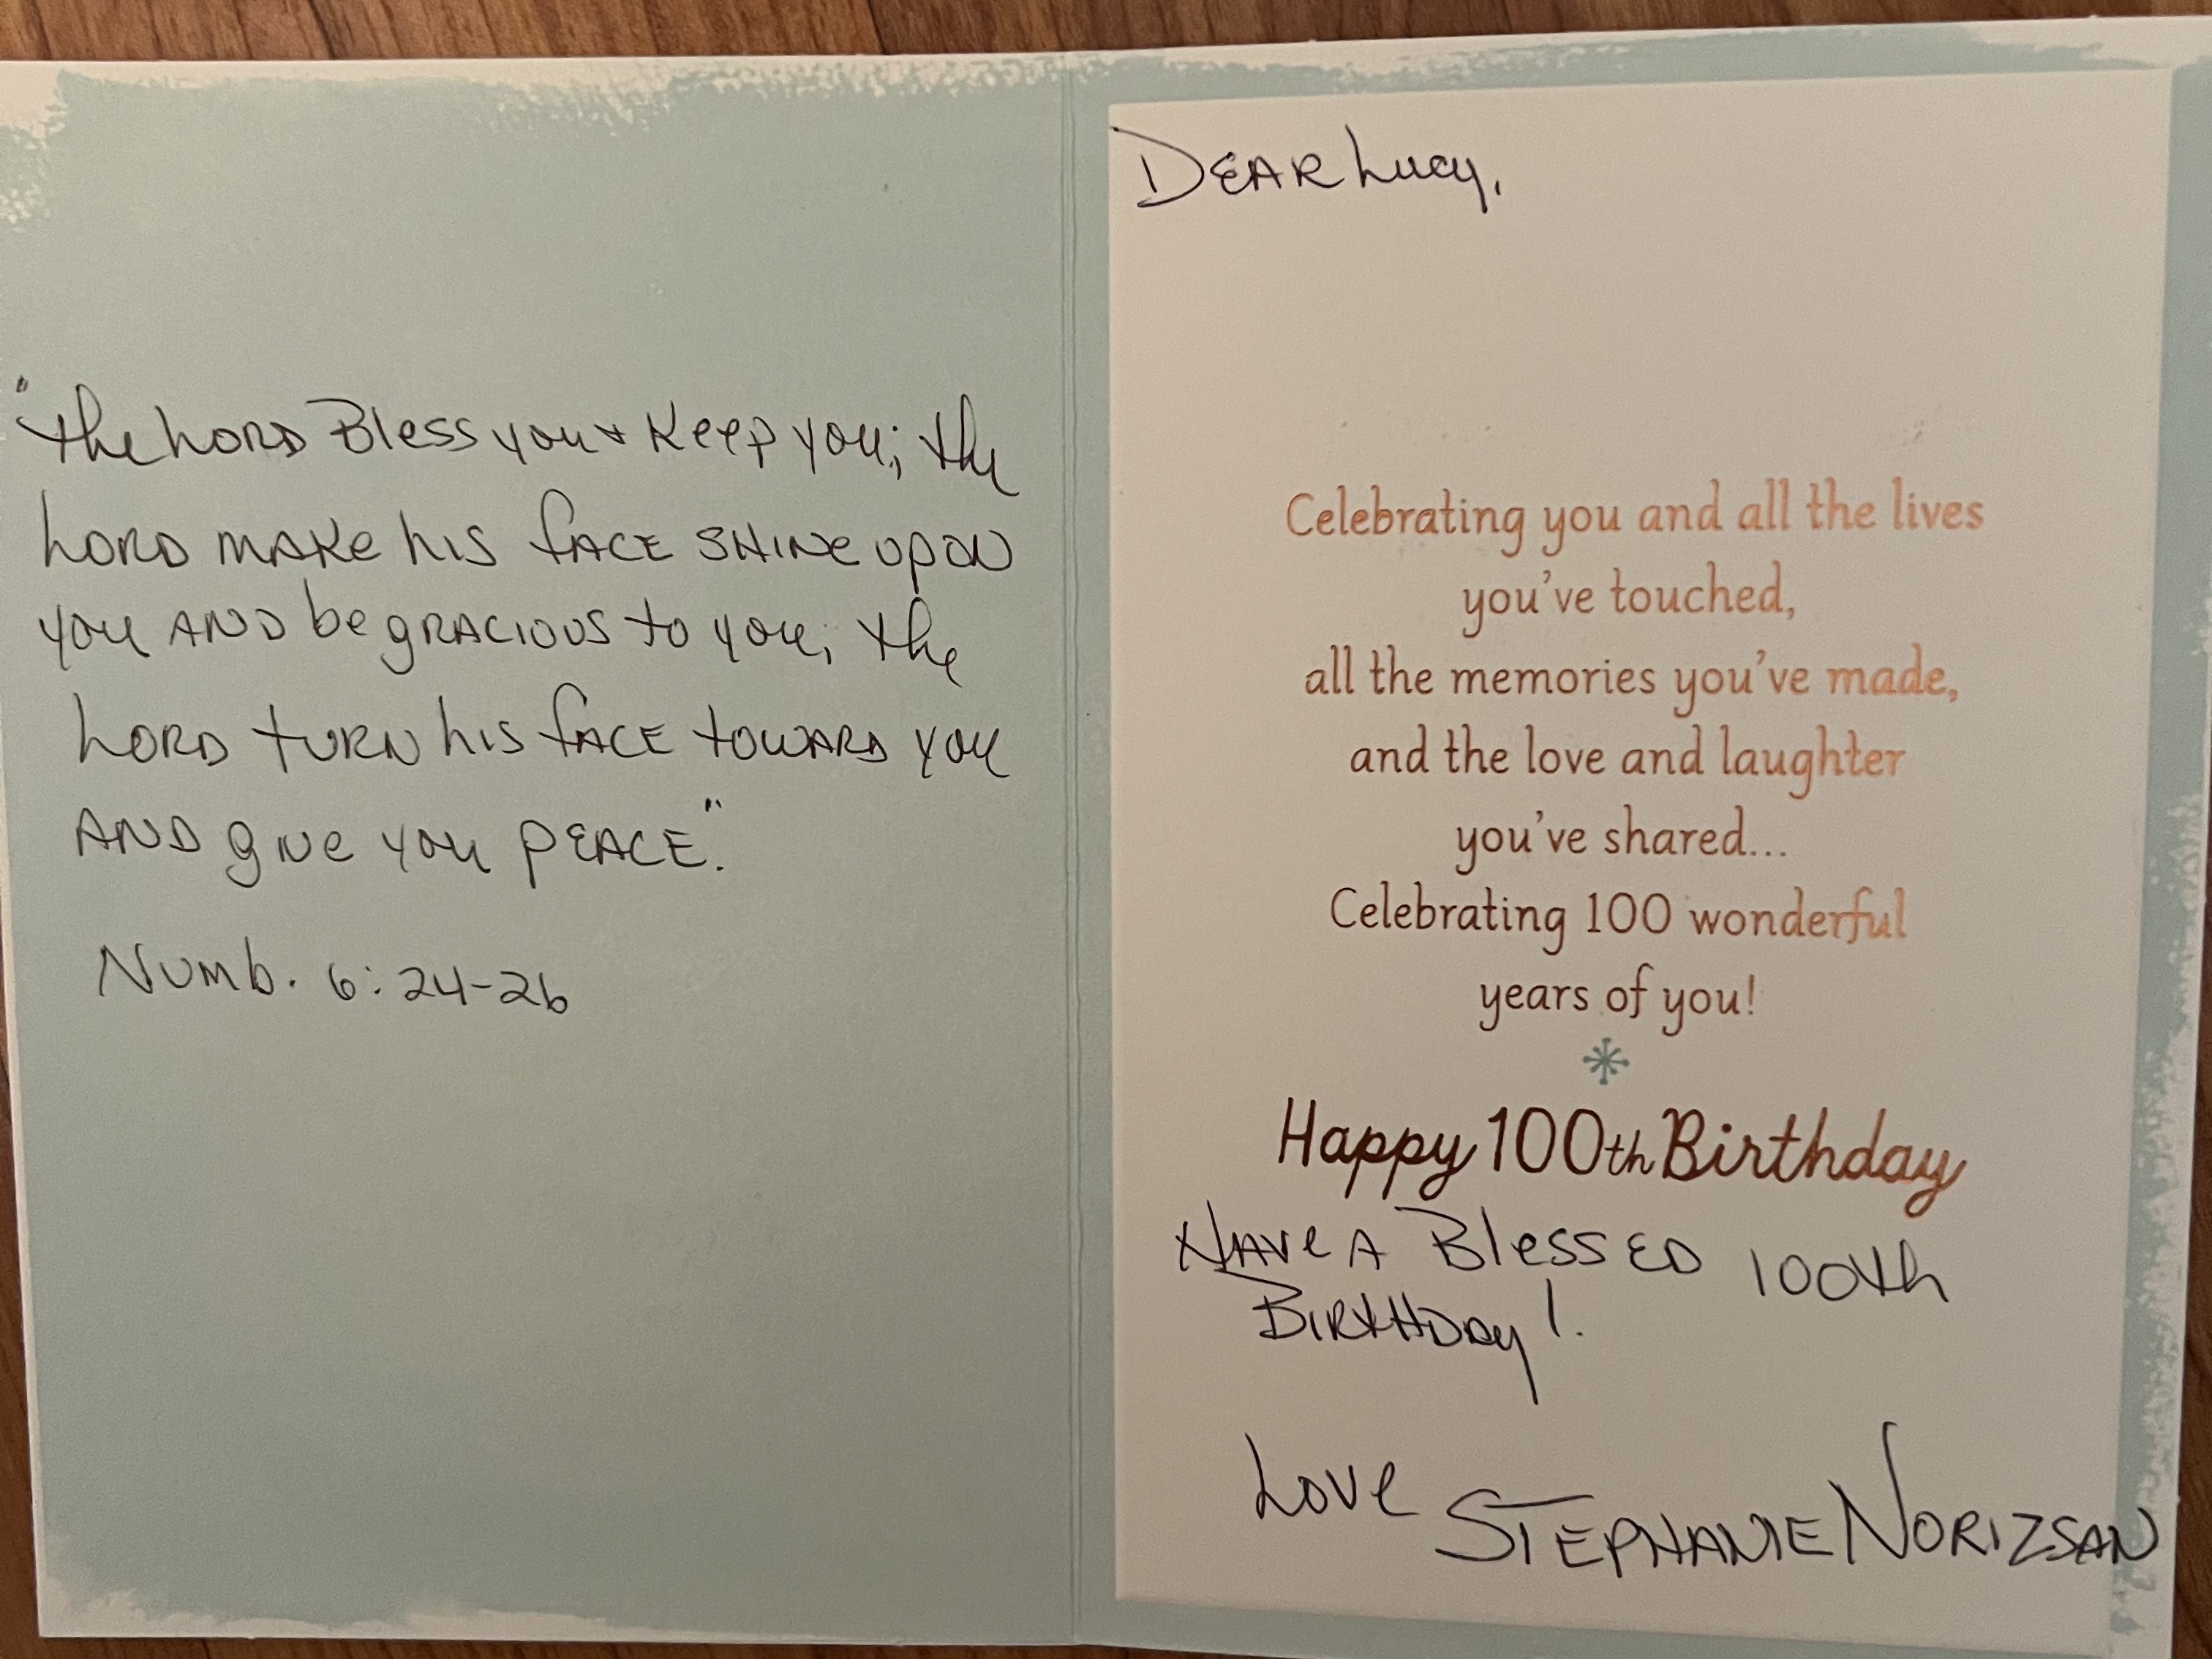 "the LORD Bless you + Keep you; the
LORD make his face shine upon
you AND be gracious to you; the
LORD turn his face toward you
AND give you peace."
Numb. 6:24-26
Dear Lucy,
Celebrating you and all the lives
you've touched,
all the memories you've made,
and the love and laughter
you've shared...
Celebrating 100 wonderful
years of you!
Happy 100th Birthday
Have A Blessed 100th
Birthday!
Love
STEPHANIE NORIZSAN